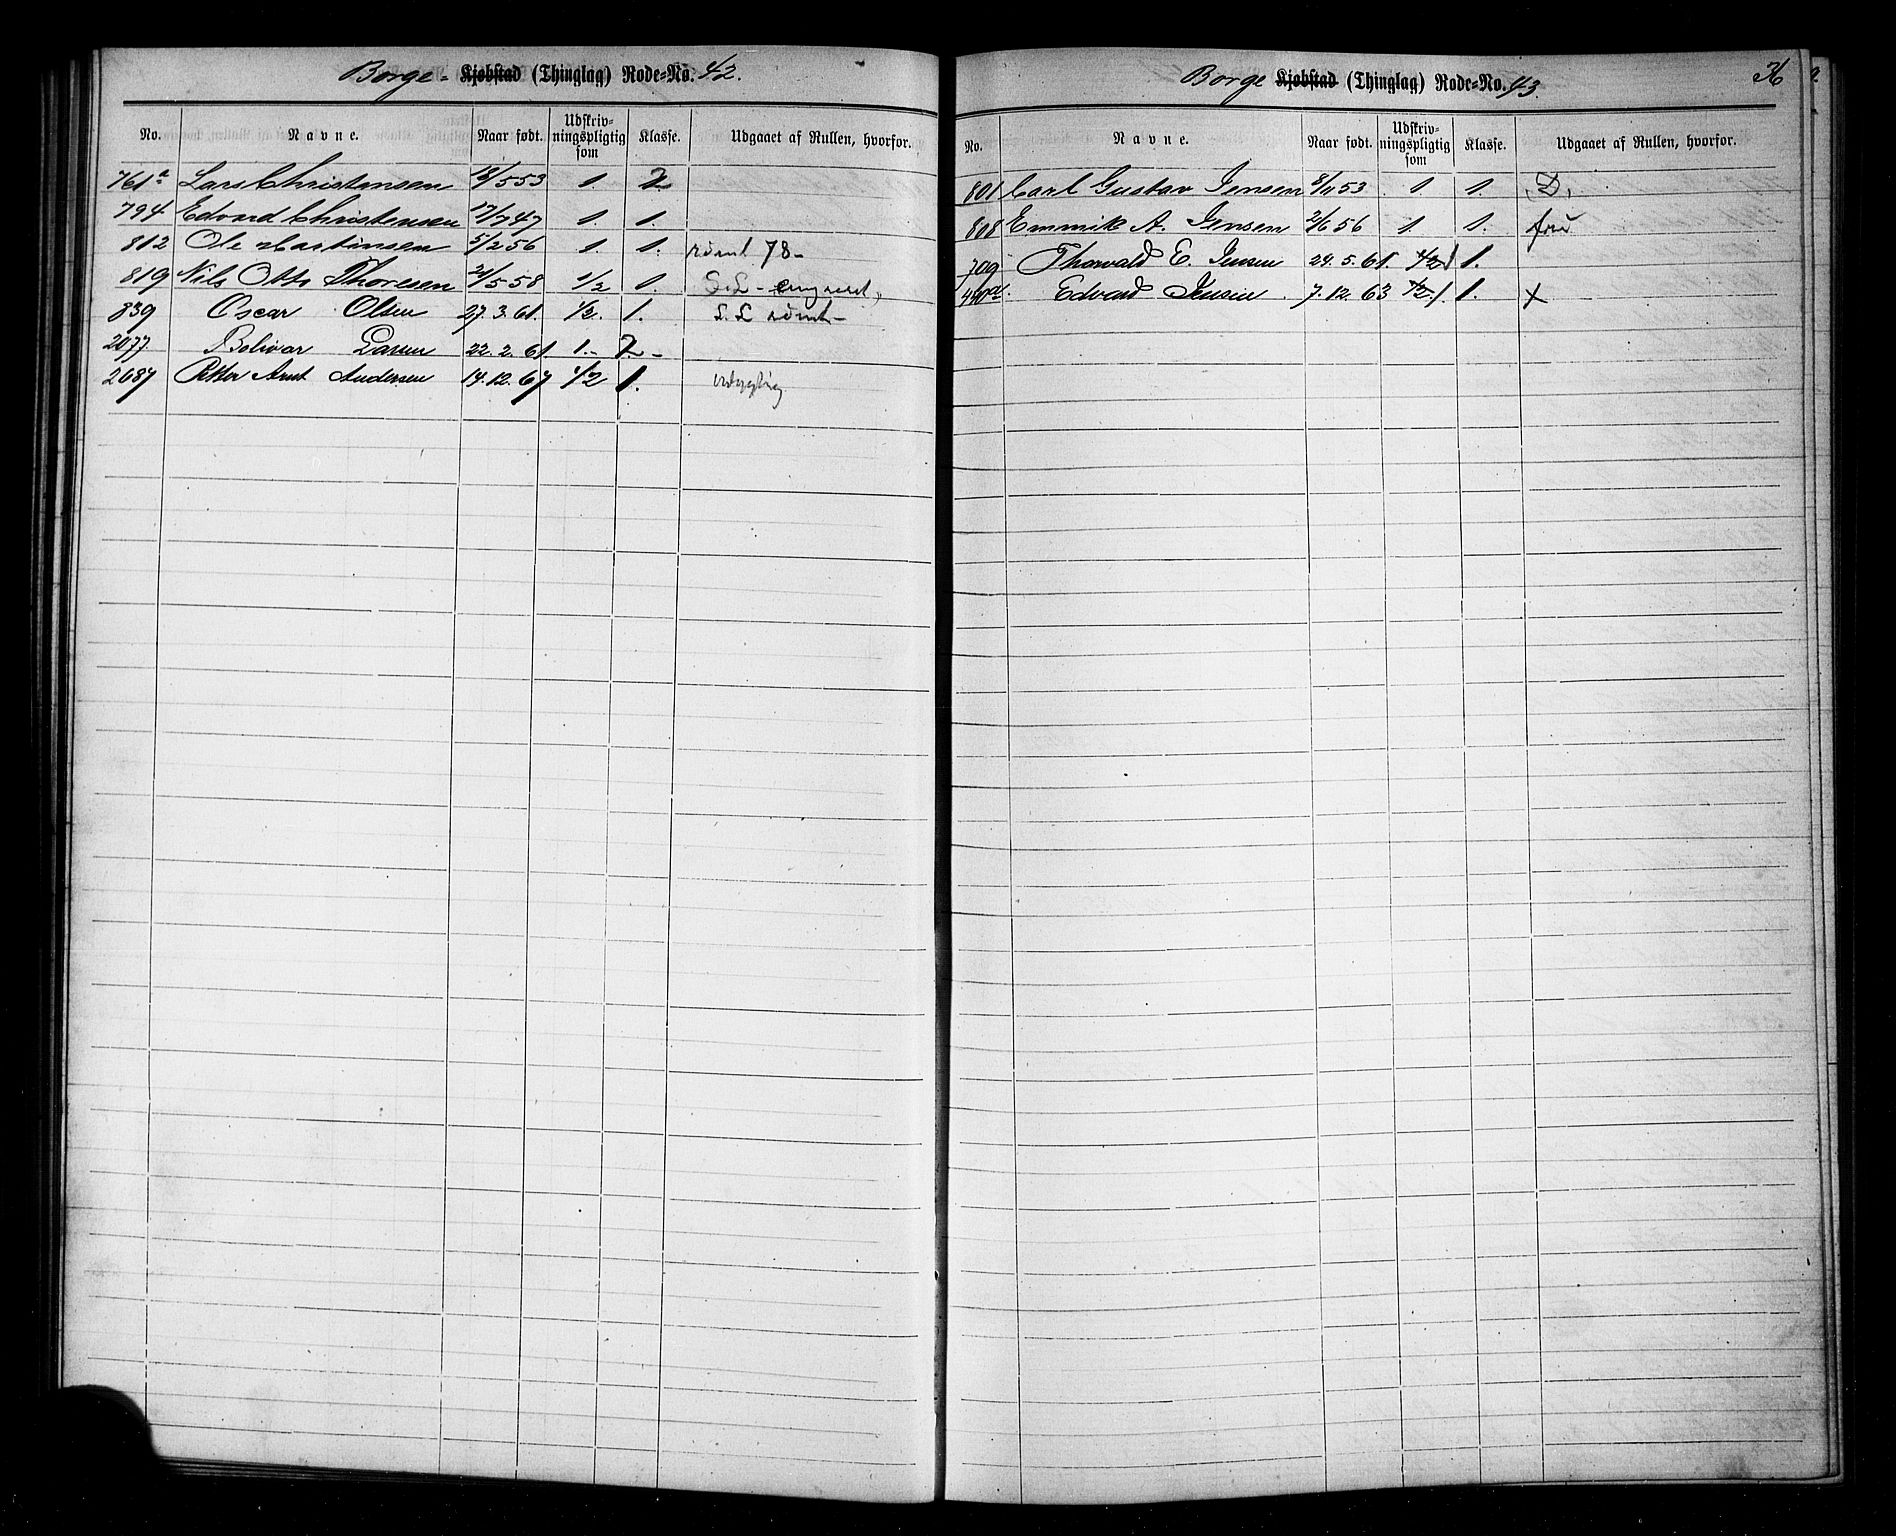 Borge - Kjøbstad (Thinglag) Rode=No. 42.
No. Navne. Naar født. Udskriv-ningspligtig som Klasse. Udgaaet af Rullen, hvorfor.
761a Lars Christensen 18/5 53 1. 2
794 Edvard Christensen 17/7 47 1. 1.
812 Ole Martinsen 5/2 56 1. 1. rømt 78-
819 Nils Otto Thoresen 21/5 58 1/2 1.
839 Oscar Olsen 27.3.61. 1/2. 1. S.L rømt-
2077 Bolivar Larsen 22.2.61 1.- 2-
2687 Petter Arnt Andersen 14.12.67 1/2 1. udygtig
Borge Kjøbstad (Thinglag) Rode=No. 43. 36
No. Navne. Naar født. Udskriv-ningspligtig som Klasse. Udgaaet af Rullen, hvorfor.
801 Carl Gustav Jensen 8/11 53 1 1. D.
808 Emmik A. Jensen 2/6 56 1 1. fri
709 Thorvald E. Jensen 24.5.61. 1/2 1 1.
Edvard Jensen 7.12.63 1/2 1. 1. X